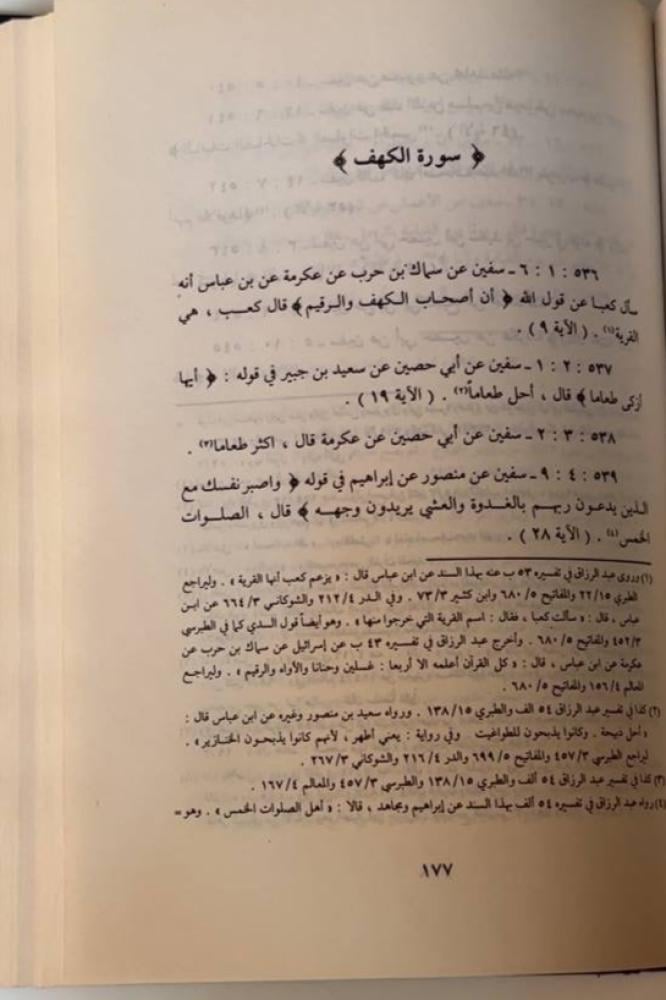 ﴿ سورة الكهف ﴾
٥٣٦ : ١ : ٦ ـ سفين عن سماك بن حرب عن عكرمة عن بن عباس أنه
سأل كعبا عن قول الله ﴿ أن أصحاب الكهف والرقيم ﴾ قال كعب ، هي
القرية(١) . ( الآية ٩ ) .
٥٣٧ : ٢ : ١ ـ سفين عن أبي حصين عن سعيد بن جبير في قوله : ﴿ أيها
أزكى طعاما ﴾ قال ، أحل طعاماً(٢) . ( الآية ١٩ ) .
٥٣٨ : ٣ : ٢ ـ سفين عن أبي حصين عن عكرمة قال ، اكثر طعاما(٣) .
٥٣٩ : ٤ : ٩ ـ سفين عن منصور عن إبراهيم في قوله ﴿ واصبر نفسك مع
الذين يدعون ربهم بالغدوة والعشي يريدون وجهه ﴾ قال ، الصلوات
الخمس(٤) . ( الآية ٢٨ ) .
(١) وروى عبد الرزاق في تفسيره ٥٣ ب عنه بهذا السند عن ابن عباس قال : « يزعم كعب أنها القرية » . وليراجع
الطبري ٢٢/١٥ والمفاتيح ٥/ ٦٨٠ وابن كثير ٧٣/٣ . وفي الدر ٢١٢/٤ والشوكاني ٦٦٤/٣ عن ابن
عباس ، قال : « سألت كعبا ، فقال : اسم القرية التي خرجوا منها » . وهو أيضاً قول السدي كما في الطبرسي
٤٥٢/٣ والمفاتيح ٥/ ٦٨٠ . وأخرج عبد الرزاق في تفسيره ٤٣ ب عن إسرائيل عن سماك بن حرب عن
عكرمة عن ابن عباس ، قال : « كل القرآن أعلمه الا أربعا : غسلين وحنانا والأواه والرقيم » . وليراجع
المعالم ١٥٦/٤ والمفاتيح ٥/ ٦٨٠ .
(٢) كذا في تفسير عبد الرزاق ٥٤ الف والطبري ١٣٨/١٥ . ورواه سعيد بن منصور وغيره عن ابن عباس قال :
« أحل ذبيحة . وكانوا يذبحون للطواغيت وفي رواية : يعني أطهر ، لأنهم كانوا يذبحون الخنازير » .
ليراجع الطبرسي ٤٥٧/٣ والمفاتيح ٥/ ٦٩٩ والدر ٢١٦/٤ والشوكاني ٢٦٧/٣ .
(٣) كذا في تفسير عبد الرزاق ٥٤ ألف والطبري ١٣٨/١٥ والطبرسي ٤٥٧/٣ والمعالم ١٦٧/٤ .
(٤) رواه عبد الرزاق في تفسيره ٥٤ ألف بهذا السند عن إبراهيم ومجاهد ، قالا : « أهل الصلوات الخمس » . وهو =
١٧٧